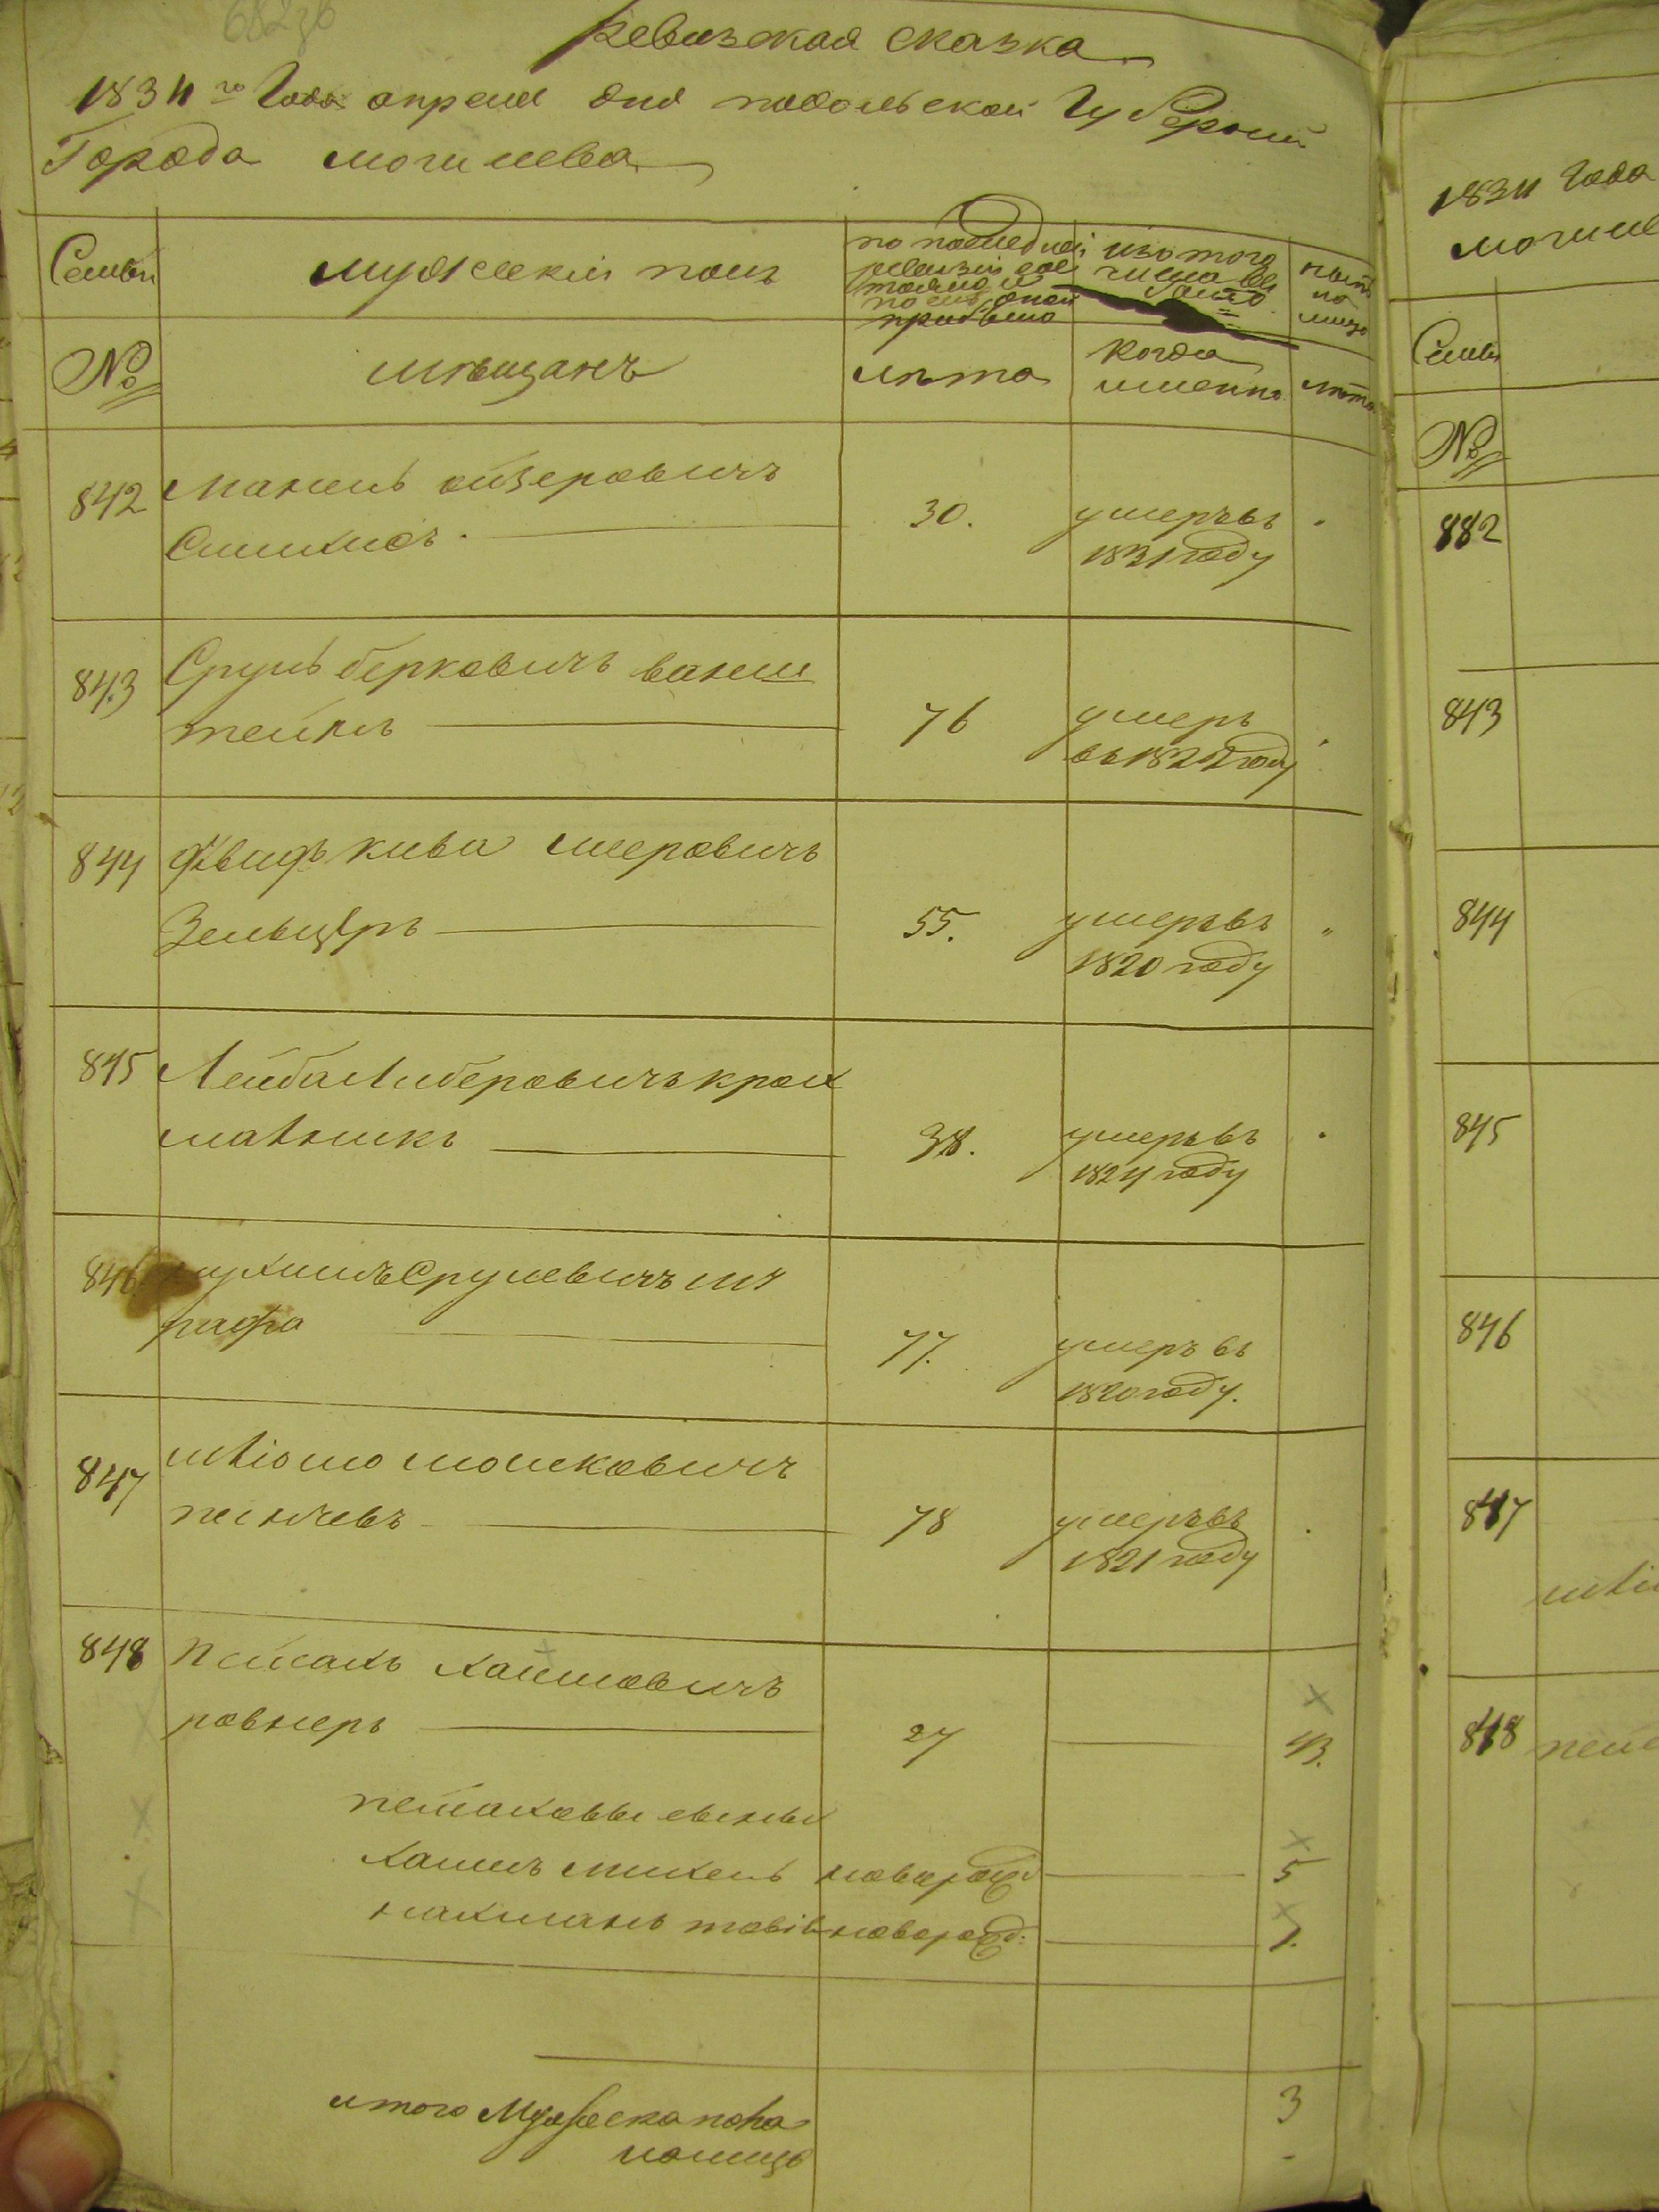 Ревизская сказка
1834 го Года апреля дня подольской Губернии
Города могилева
Семьи
мужеский полъ
по последней ревизии состояло и после оной прибыло
изъ того числа выбыло
ныне на лицо
№
мѣщанъ
лѣта
когда именно
лѣта
842
Манель ойзеровичъ
30.
умеръ въ
1831 году
843
Сруль берковичъ ванш
тейнъ
76
умеръ
въ 1822 году
844
кива меровичъ
Зельцеръ
55.
умеръ въ
1820 году
845
Лейба Либеровичъ крах
мальникъ
38.
умеръ въ
1824 году
846
Срулевичъ
77.
умеръ въ
1820 году.
847
шліомо мошковичъ
78
умеръ въ
1821 году
848
Пейсахъ хаимовичъ
ровнеръ
27
43.
пейсаховы сыновья
хаимъ михель новорожд
5
нахманъ товія новорожд:
1.
итого мужеска пола
налицо
3
1834 Года
могиле
Семьи
№
882
843
844
845
846
847
шлі
848
пейс